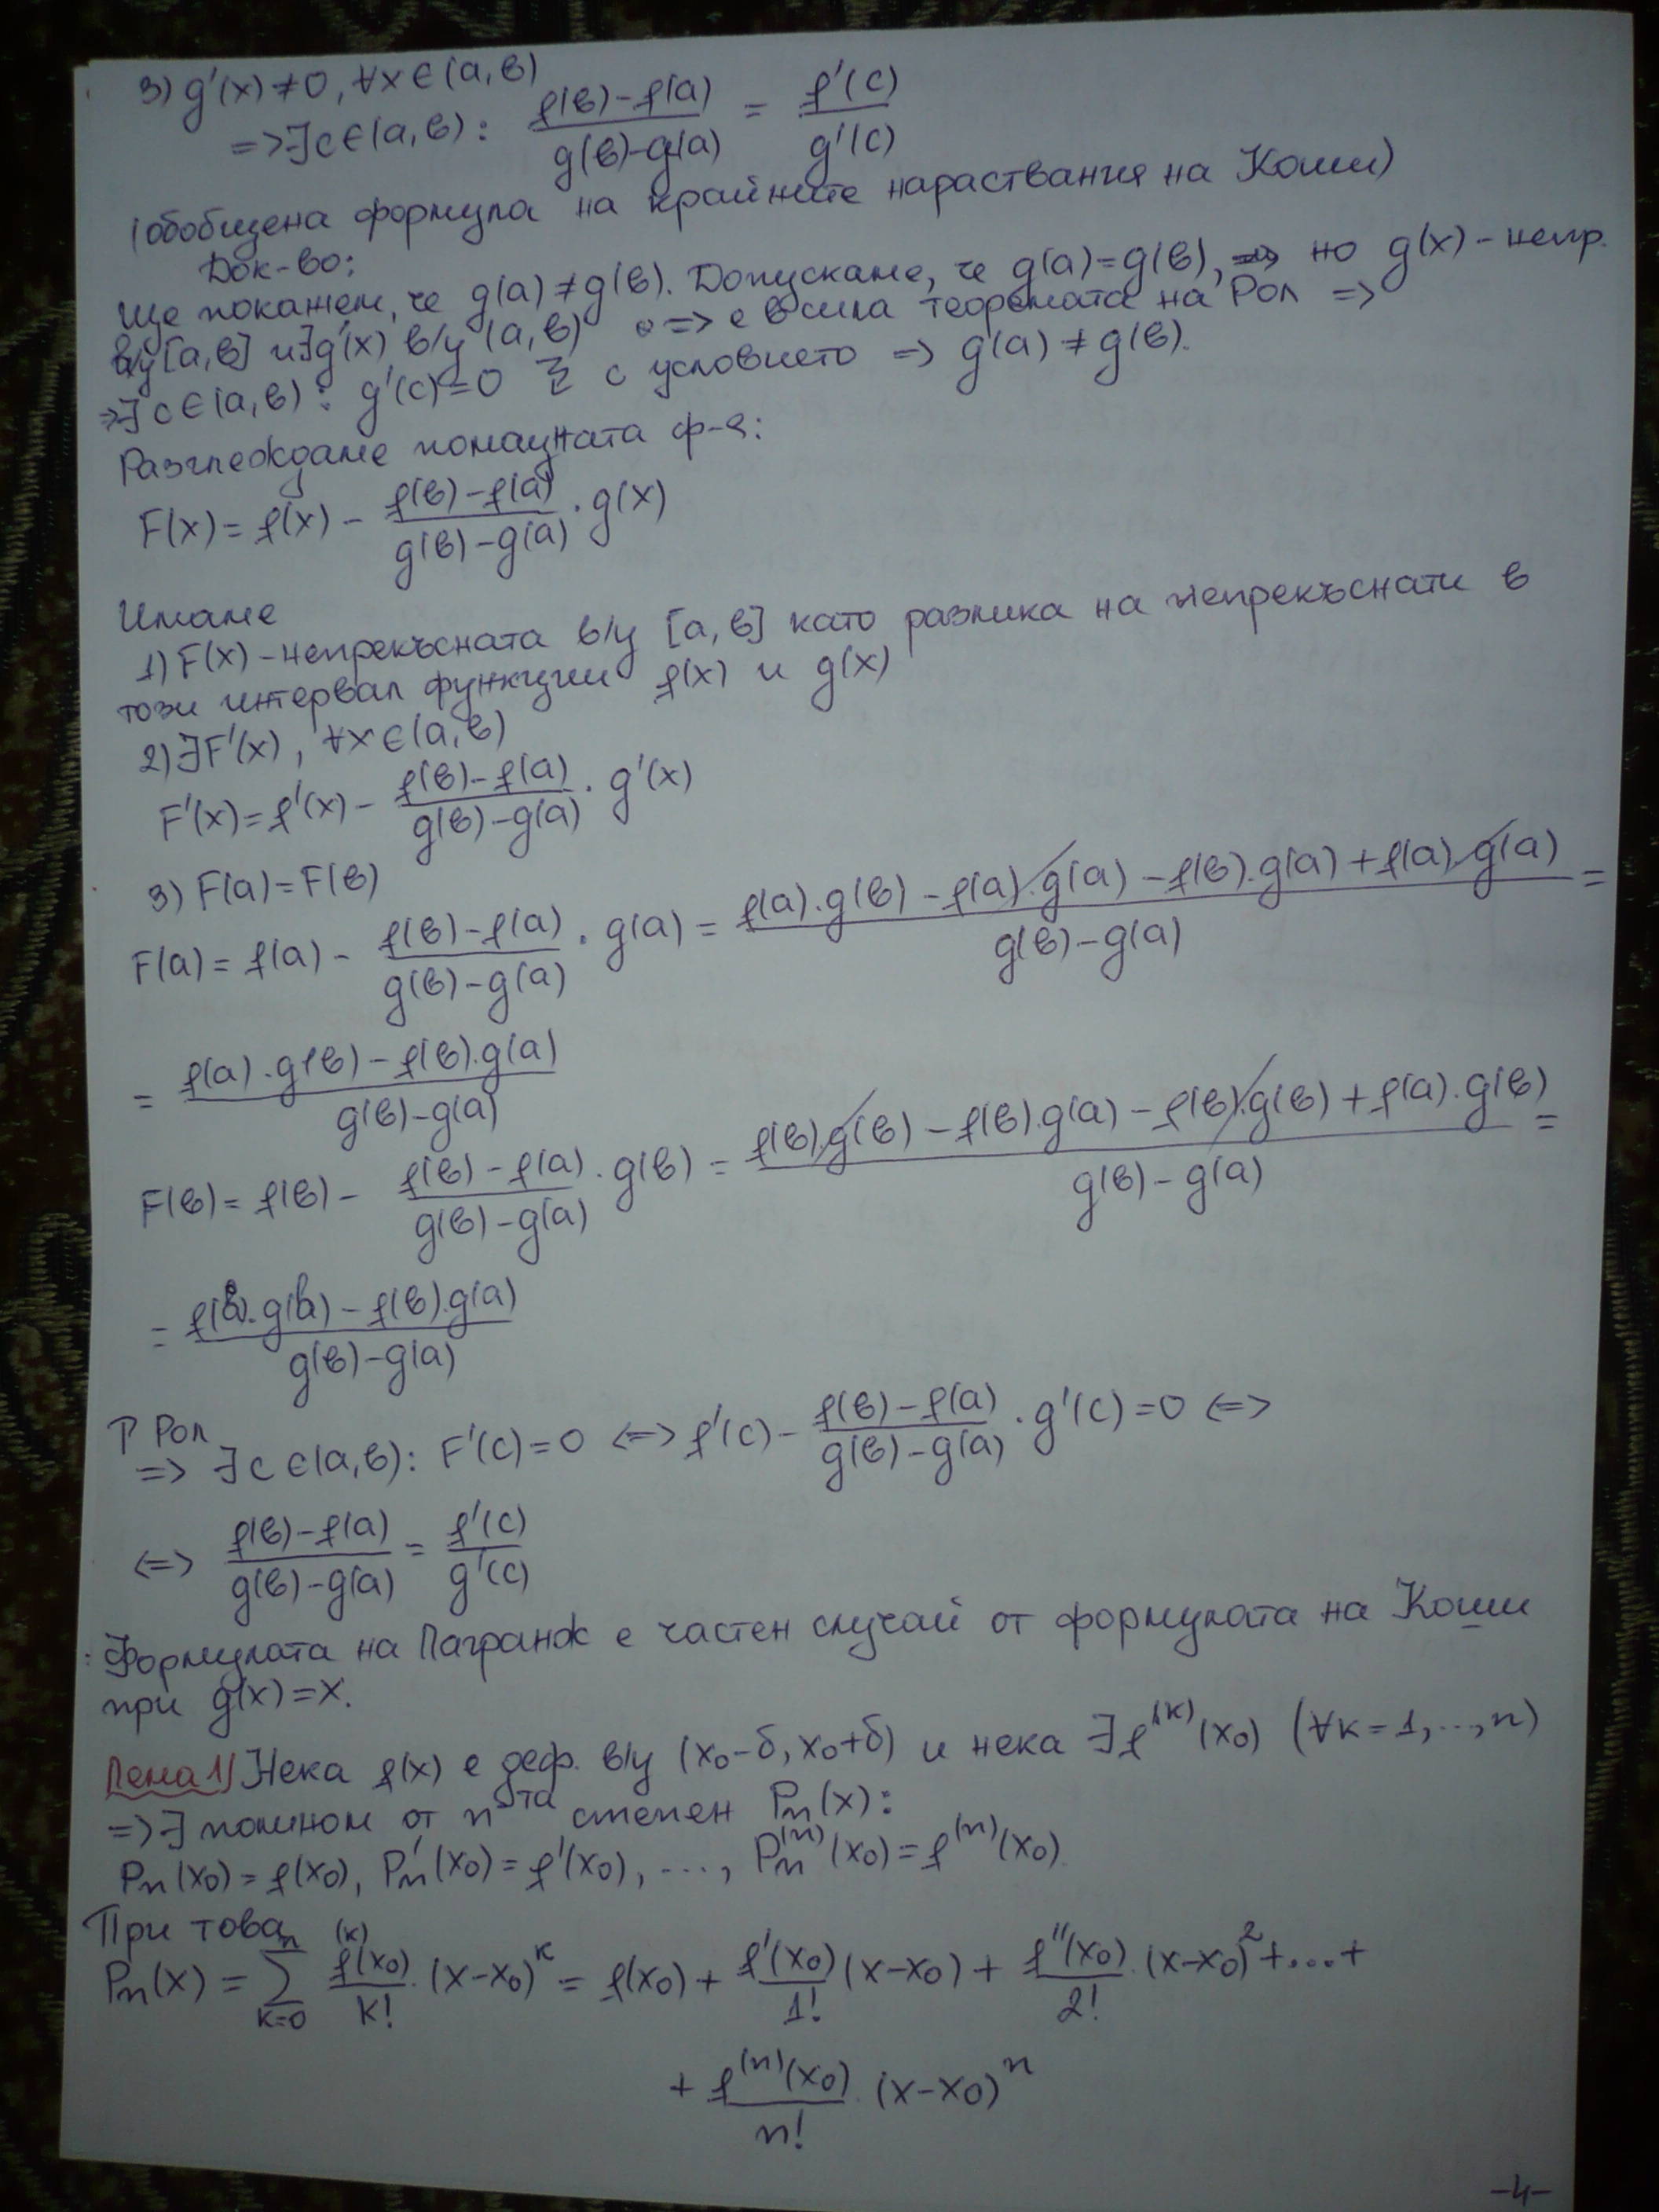 3) g'(x) ≠ 0, ∀x ∈ (a, в)
=> ∃ c ∈ (a, в): (f(в) - f(a)) / (g(в) - g(a)) = f'(c) / g'(c)
(обобщена формула на крайните нараствания на Коши)
Док-во:
Ще покажем, че g(a) ≠ g(в). Допускаме, че g(a) = g(в), но g(x) - непр.
в/у [a, в] и ∃ g'(x) в/у (a, в) => е в сила теоремата на Рол =>
=> ∃ c ∈ (a, в): g'(c) = 0 с условието => g(a) ≠ g(в).
Разглеждаме помощната ф-я:
F(x) = f(x) - (f(в) - f(a)) / (g(в) - g(a)) . g(x)
Имаме
1) F(x) - непрекъсната в/у [a, в] като разлика на непрекъснати в
този интервал функции f(x) и g(x)
2) ∃ F'(x), ∀x ∈ (a, в)
F'(x) = f'(x) - (f(в) - f(a)) / (g(в) - g(a)) . g'(x)
3) F(a) = F(в)
F(a) = f(a) - (f(в) - f(a)) / (g(в) - g(a)) . g(a) = (f(a).g(в) - f(a).g(a) - f(в).g(a) + f(a).g(a)) / (g(в) - g(a)) =
= (f(a).g(в) - f(в).g(a)) / (g(в) - g(a))
F(в) = f(в) - (f(в) - f(a)) / (g(в) - g(a)) . g(в) = (f(в).g(в) - f(в).g(a) - f(в).g(в) + f(a).g(в)) / (g(в) - g(a)) =
= (f(a).g(в) - f(в).g(a)) / (g(в) - g(a))
Т Рол
=> ∃ c ∈ (a, в): F'(c) = 0 <=> f'(c) - (f(в) - f(a)) / (g(в) - g(a)) . g'(c) = 0 <=>
<=> (f(в) - f(a)) / (g(в) - g(a)) = f'(c) / g'(c)
Формулата на Лагранж е частен случай от формулата на Коши
при g(x) = x.
Лема 1) Нека f(x) е деф. в/у (x₀-δ, x₀+δ) и нека ∃ f⁽ᵏ⁾(x₀) (∀к = 1, ..., n)
=> ∃ полином от n-та степен Pₙ(x):
Pₙ(x₀) = f(x₀), Pₙ'(x₀) = f'(x₀), ..., Pₙ⁽ⁿ⁾(x₀) = f⁽ⁿ⁾(x₀).
При това
Pₙ(x) = ∑ₖ₌₀ⁿ f⁽ᵏ⁾(x₀) / к! . (x-x₀)ᵏ = f(x₀) + f'(x₀) / 1! (x-x₀) + f''(x₀) / 2! . (x-x₀)² + ... +
+ f⁽ⁿ⁾(x₀) / n! . (x-x₀)ⁿ
-4-